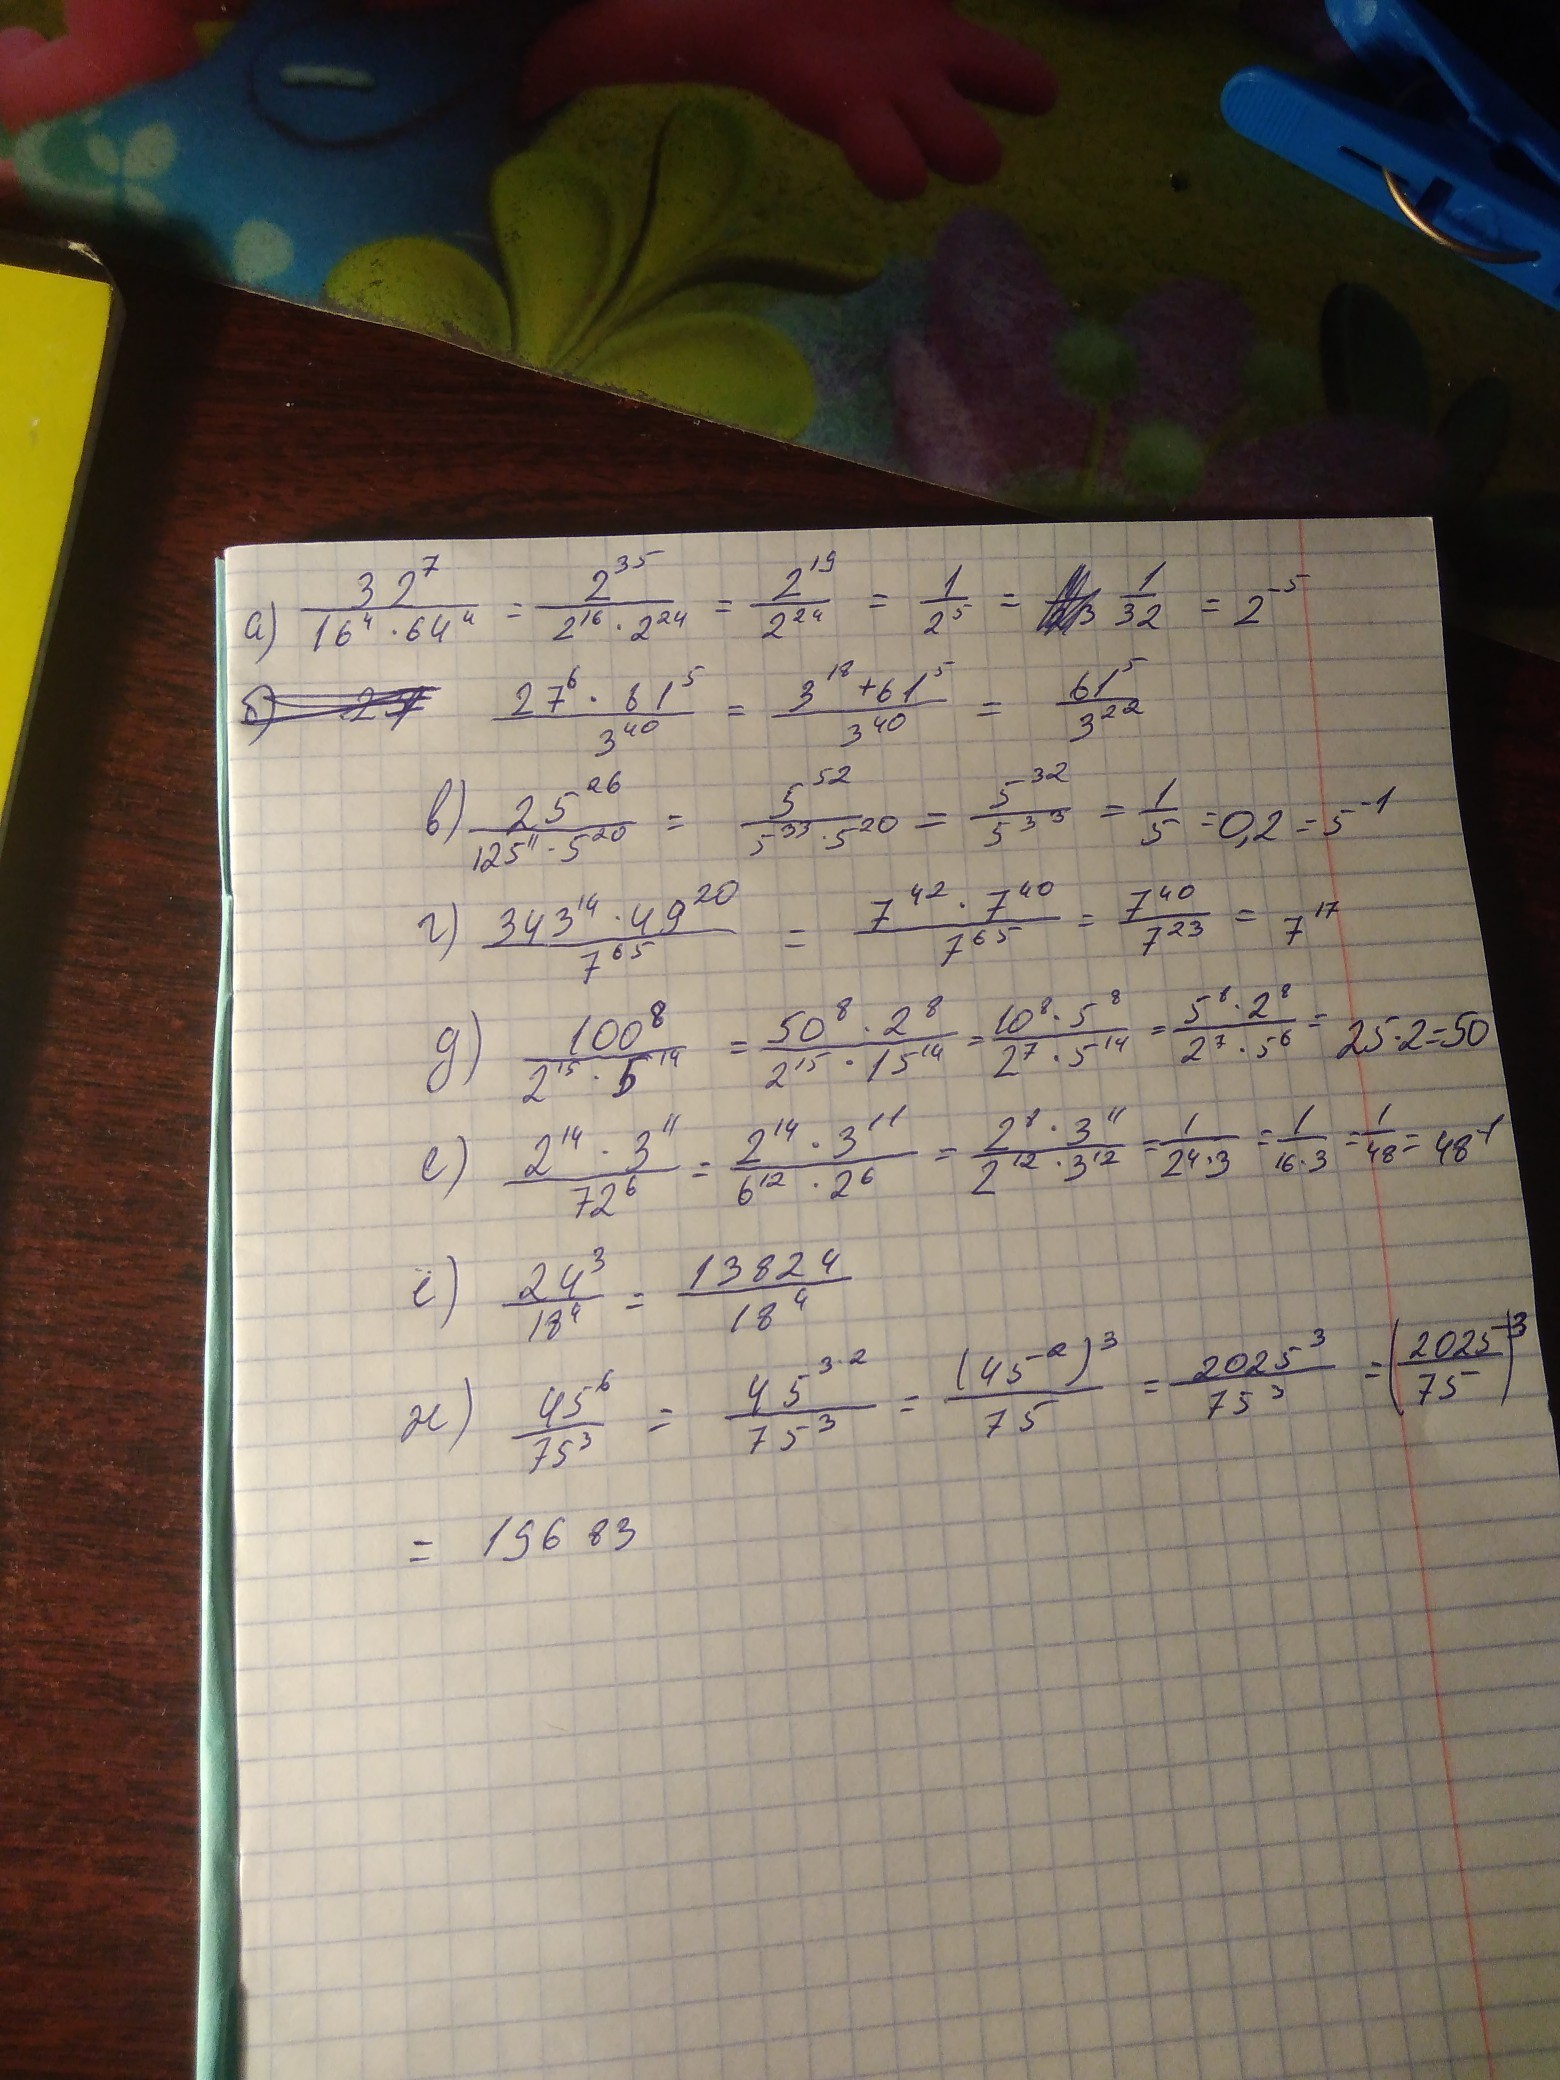 а) 32^7 / (16^4 · 64^4) = 2^35 / (2^16 · 2^24) = 2^19 / 2^24 = 1 / 2^5 = 1 / 32 = 2^-5
(27^6 · 61^5) / 3^40 = (3^18 + 61^5) / 3^40 = 61^5 / 3^22
в) 25^26 / (125^11 · 5^20) = 5^52 / (5^33 · 5^20) = 5^32 / 5^33 = 1 / 5 = 0,2 = 5^-1
г) (343^14 · 49^20) / 7^65 = (7^42 · 7^40) / 7^65 = 7^40 / 7^23 = 7^17
д) 100^8 / (2^15 · 5^14) = (50^8 · 2^8) / (2^15 · 15^14) = (10^8 · 5^8) / (2^7 · 5^14) = (5^8 · 2^8) / (2^7 · 5^6) = 25·2=50
е) (2^14 · 3^11) / 72^6 = (2^14 · 3^11) / (6^12 · 2^6) = (2^8 · 3^11) / (2^12 · 3^12) = 1 / (2^4 · 3) = 1 / (16·3) = 1 / 48 = 48^-1
ё) 24^3 / 18^4 = 13824 / 18^4
ж) 45^6 / 75^3 = 45^(3·2) / 75^3 = (45^2)^3 / 75 = 2025^3 / 75^3 = (2025 / 75)^3
= 19683